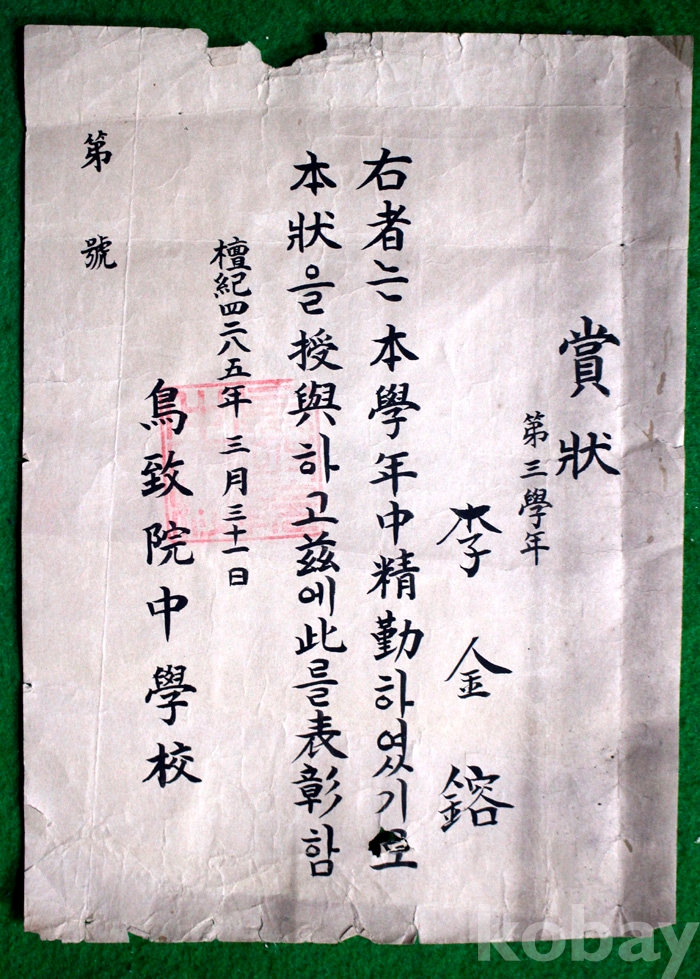 賞狀
第三學年
李金鎔
右者는本學年中精勤하였기로
本狀을授與하고玆에此를表彰함
檀紀四二八五年三月三十一日
鳥致院中學校
第號
kobay